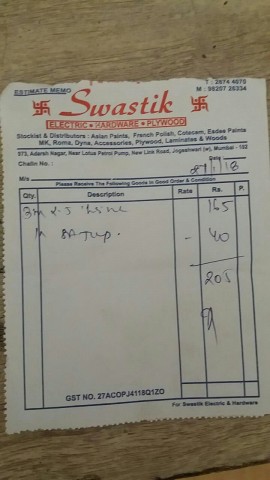 T : 2674 4070
ESTIMATE MEMO
M : 98207 26334
Swastik
ELECTRIC • HARDWARE • PLYWOOD
Stockist & Distributors : Asian Paints, French Polish, Cotecem, Eades Paints
MK, Roma, Dyna, Accessories, Plywood, Laminates & Woods
873, Adarsh Nagar, Near Lotus Petrol Pump, New Link Road, Jogeshwari (w), Mumbai - 102
Challn No. :
M/s
Please Receive The Following Goods In Good Order & Condition
Qty. Description Rate Rs. P.
165
- 40
205
GST NO. 27ACOPJ4118Q1ZO
For Swastik Electric & Hardware